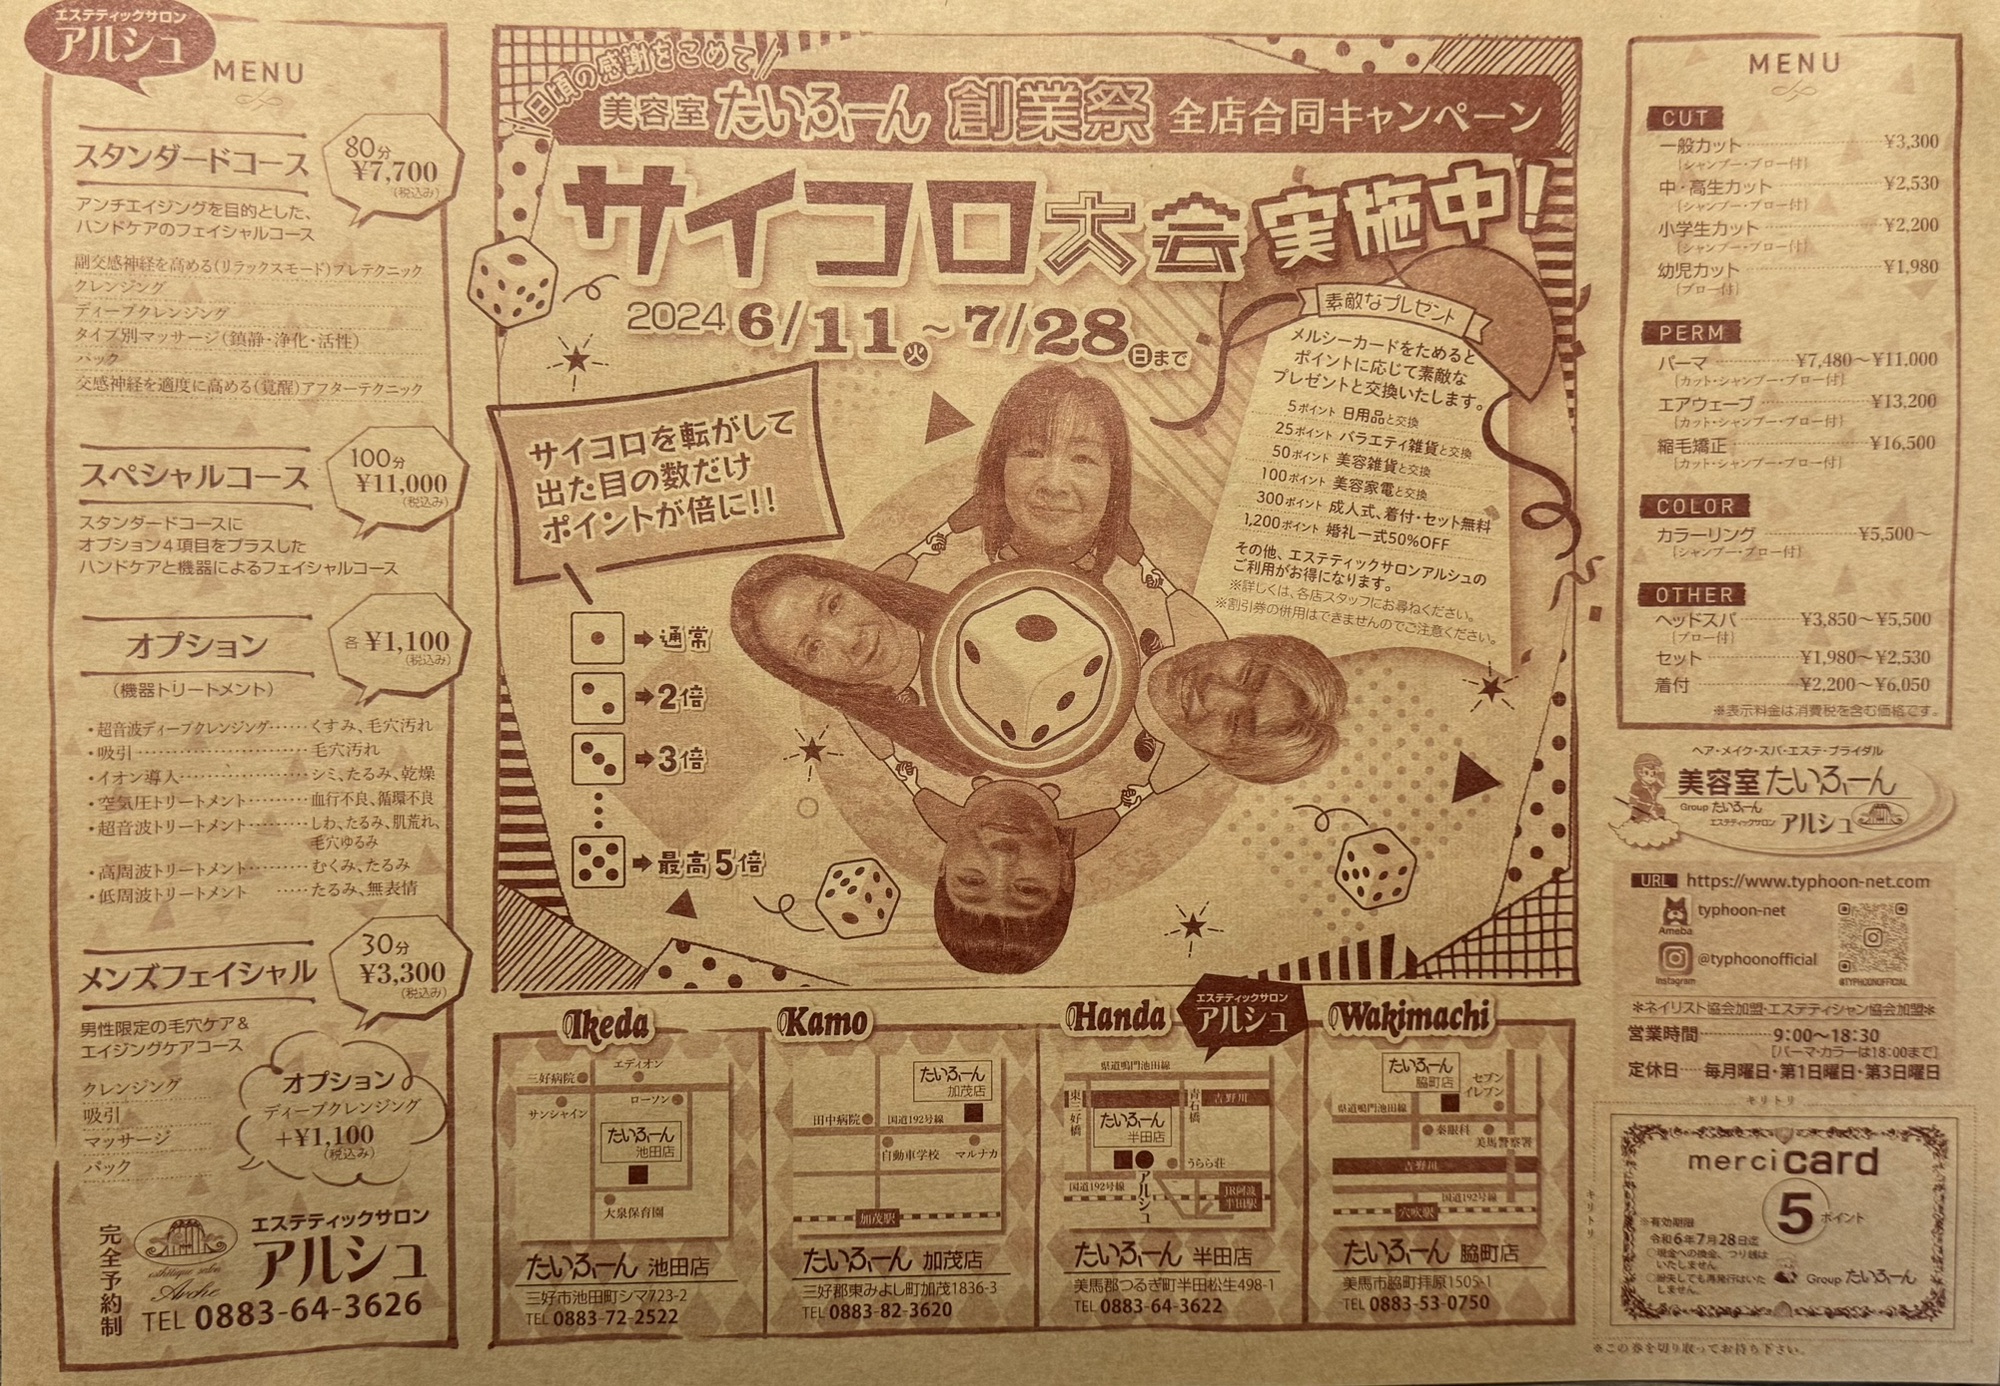 エステティックサロン
アルシュ
MENU
スタンダードコース
80分
¥7,700
(税込み)
アンチエイジングを目的とした、
ハンドケアのフェイシャルコース
副交感神経を高める(リラックスモード)プレテクニック
クレンジング
ディープクレンジング
タイプ別マッサージ(鎮静・浄化・活性)
パック
交感神経を適度に高める(覚醒)アフターテクニック
スペシャルコース
100分
¥11,000
(税込み)
スタンダードコースに
オプション4項目をプラスした
ハンドケアと機器によるフェイシャルコース
オプション
各¥1,100
(税込み)
(機器トリートメント)
・超音波ディープクレンジング……くすみ、毛穴汚れ
・吸引……毛穴汚れ
・イオン導入……シミ、たるみ、乾燥
・空気圧トリートメント……血行不良、循環不良
・超音波トリートメント……しわ、たるみ、肌荒れ、
毛穴ゆるみ
・高周波トリートメント……むくみ、たるみ
・低周波トリートメント……たるみ、無表情
メンズフェイシャル
30分
¥3,300
(税込み)
男性限定の毛穴ケア&
エイジングケアコース
クレンジング
吸引
マッサージ
パック
オプション
ディープクレンジング
+¥1,100
(税込み)
完全予約制
esthétique salon
Arche
エステティックサロン
アルシュ
TEL 0883-64-3626
日頃の感謝をこめて
美容室 たいふーん 創業祭 全店合同キャンペーン
サイコロ大会 実施中!
2024 6/11(火)~7/28(日)まで
サイコロを転がして
出た目の数だけ
ポイントが倍に!!
➡通常
➡2倍
➡3倍
➡最高5倍
素敵なプレゼント
メルシーカードをためると
ポイントに応じて素敵な
プレゼントと交換いたします。
5ポイント 日用品と交換
25ポイント バラエティ雑貨と交換
50ポイント 美容雑貨と交換
100ポイント 美容家電と交換
300ポイント 成人式、着付・セット無料
1,200ポイント 婚礼一式50%OFF
その他、エステティックサロンアルシュの
ご利用がお得になります。
※詳しくは、各店スタッフにお尋ねください。
※割引券の併用はできませんのでご注意ください。
Ikeda
三好病院
エディオン
サンシャイン
ローソン
たいふーん
池田店
大泉保育園
たいふーん 池田店
三好市池田町シマ723-2
TEL 0883-72-2522
Kamo
たいふーん
加茂店
田中病院
国道192号線
自動車学校
マルナカ
加茂駅
たいふーん 加茂店
三好郡東みよし町加茂1836-3
TEL 0883-82-3620
Handa
エステティックサロン
アルシュ
県道鳴門池田線
東三好橋
青石橋
吉野川
たいふーん
半田店
うらら荘
国道192号線
アルシュ
JR阿波
半田駅
たいふーん 半田店
美馬郡つるぎ町半田松生498-1
TEL 0883-64-3622
Wakimachi
たいふーん
脇町店
セブン
イレブン
県道鳴門池田線
秦眼科
美馬警察署
吉野川
国道192号線
穴吹駅
たいふーん 脇町店
美馬市脇町拝原1505-1
TEL 0883-53-0750
MENU
CUT
一般カット……¥3,300
(シャンプー・ブロー付)
中・高生カット……¥2,530
(シャンプー・ブロー付)
小学生カット……¥2,200
(シャンプー・ブロー付)
幼児カット……¥1,980
(ブロー付)
PERM
パーマ……¥7,480~¥11,000
(カット・シャンプー・ブロー付)
エアウェーブ……¥13,200
(カット・シャンプー・ブロー付)
縮毛矯正……¥16,500
(カット・シャンプー・ブロー付)
COLOR
カラーリング……¥5,500~
(シャンプー・ブロー付)
OTHER
ヘッドスパ……¥3,850~¥5,500
(ブロー付)
セット……¥1,980~¥2,530
着付……¥2,200~¥6,050
※表示料金は消費税を含む価格です。
ヘア・メイク・スパ・エステ・ブライダル
美容室 たいふーん
Group たいふーん
エステティックサロン アルシュ
URL https://www.typhoon-net.com
Ameba
typhoon-net
Instagram
@typhoonofficial
@TYPHOONOFFICIAL
＊ネイリスト協会加盟・エステティシャン協会加盟＊
営業時間……9:00~18:30
[パーマ・カラーは18:00まで]
定休日……毎月曜日・第1日曜日・第3日曜日
キリトリ
キリトリ
merci card
5ポイント
※有効期限
令和6年7月28日迄
○現金への換金、つり銭は
いたしません
○紛失しても再発行はいた
しません。
Group たいふーん
※この券を切り取ってお持ち下さい。